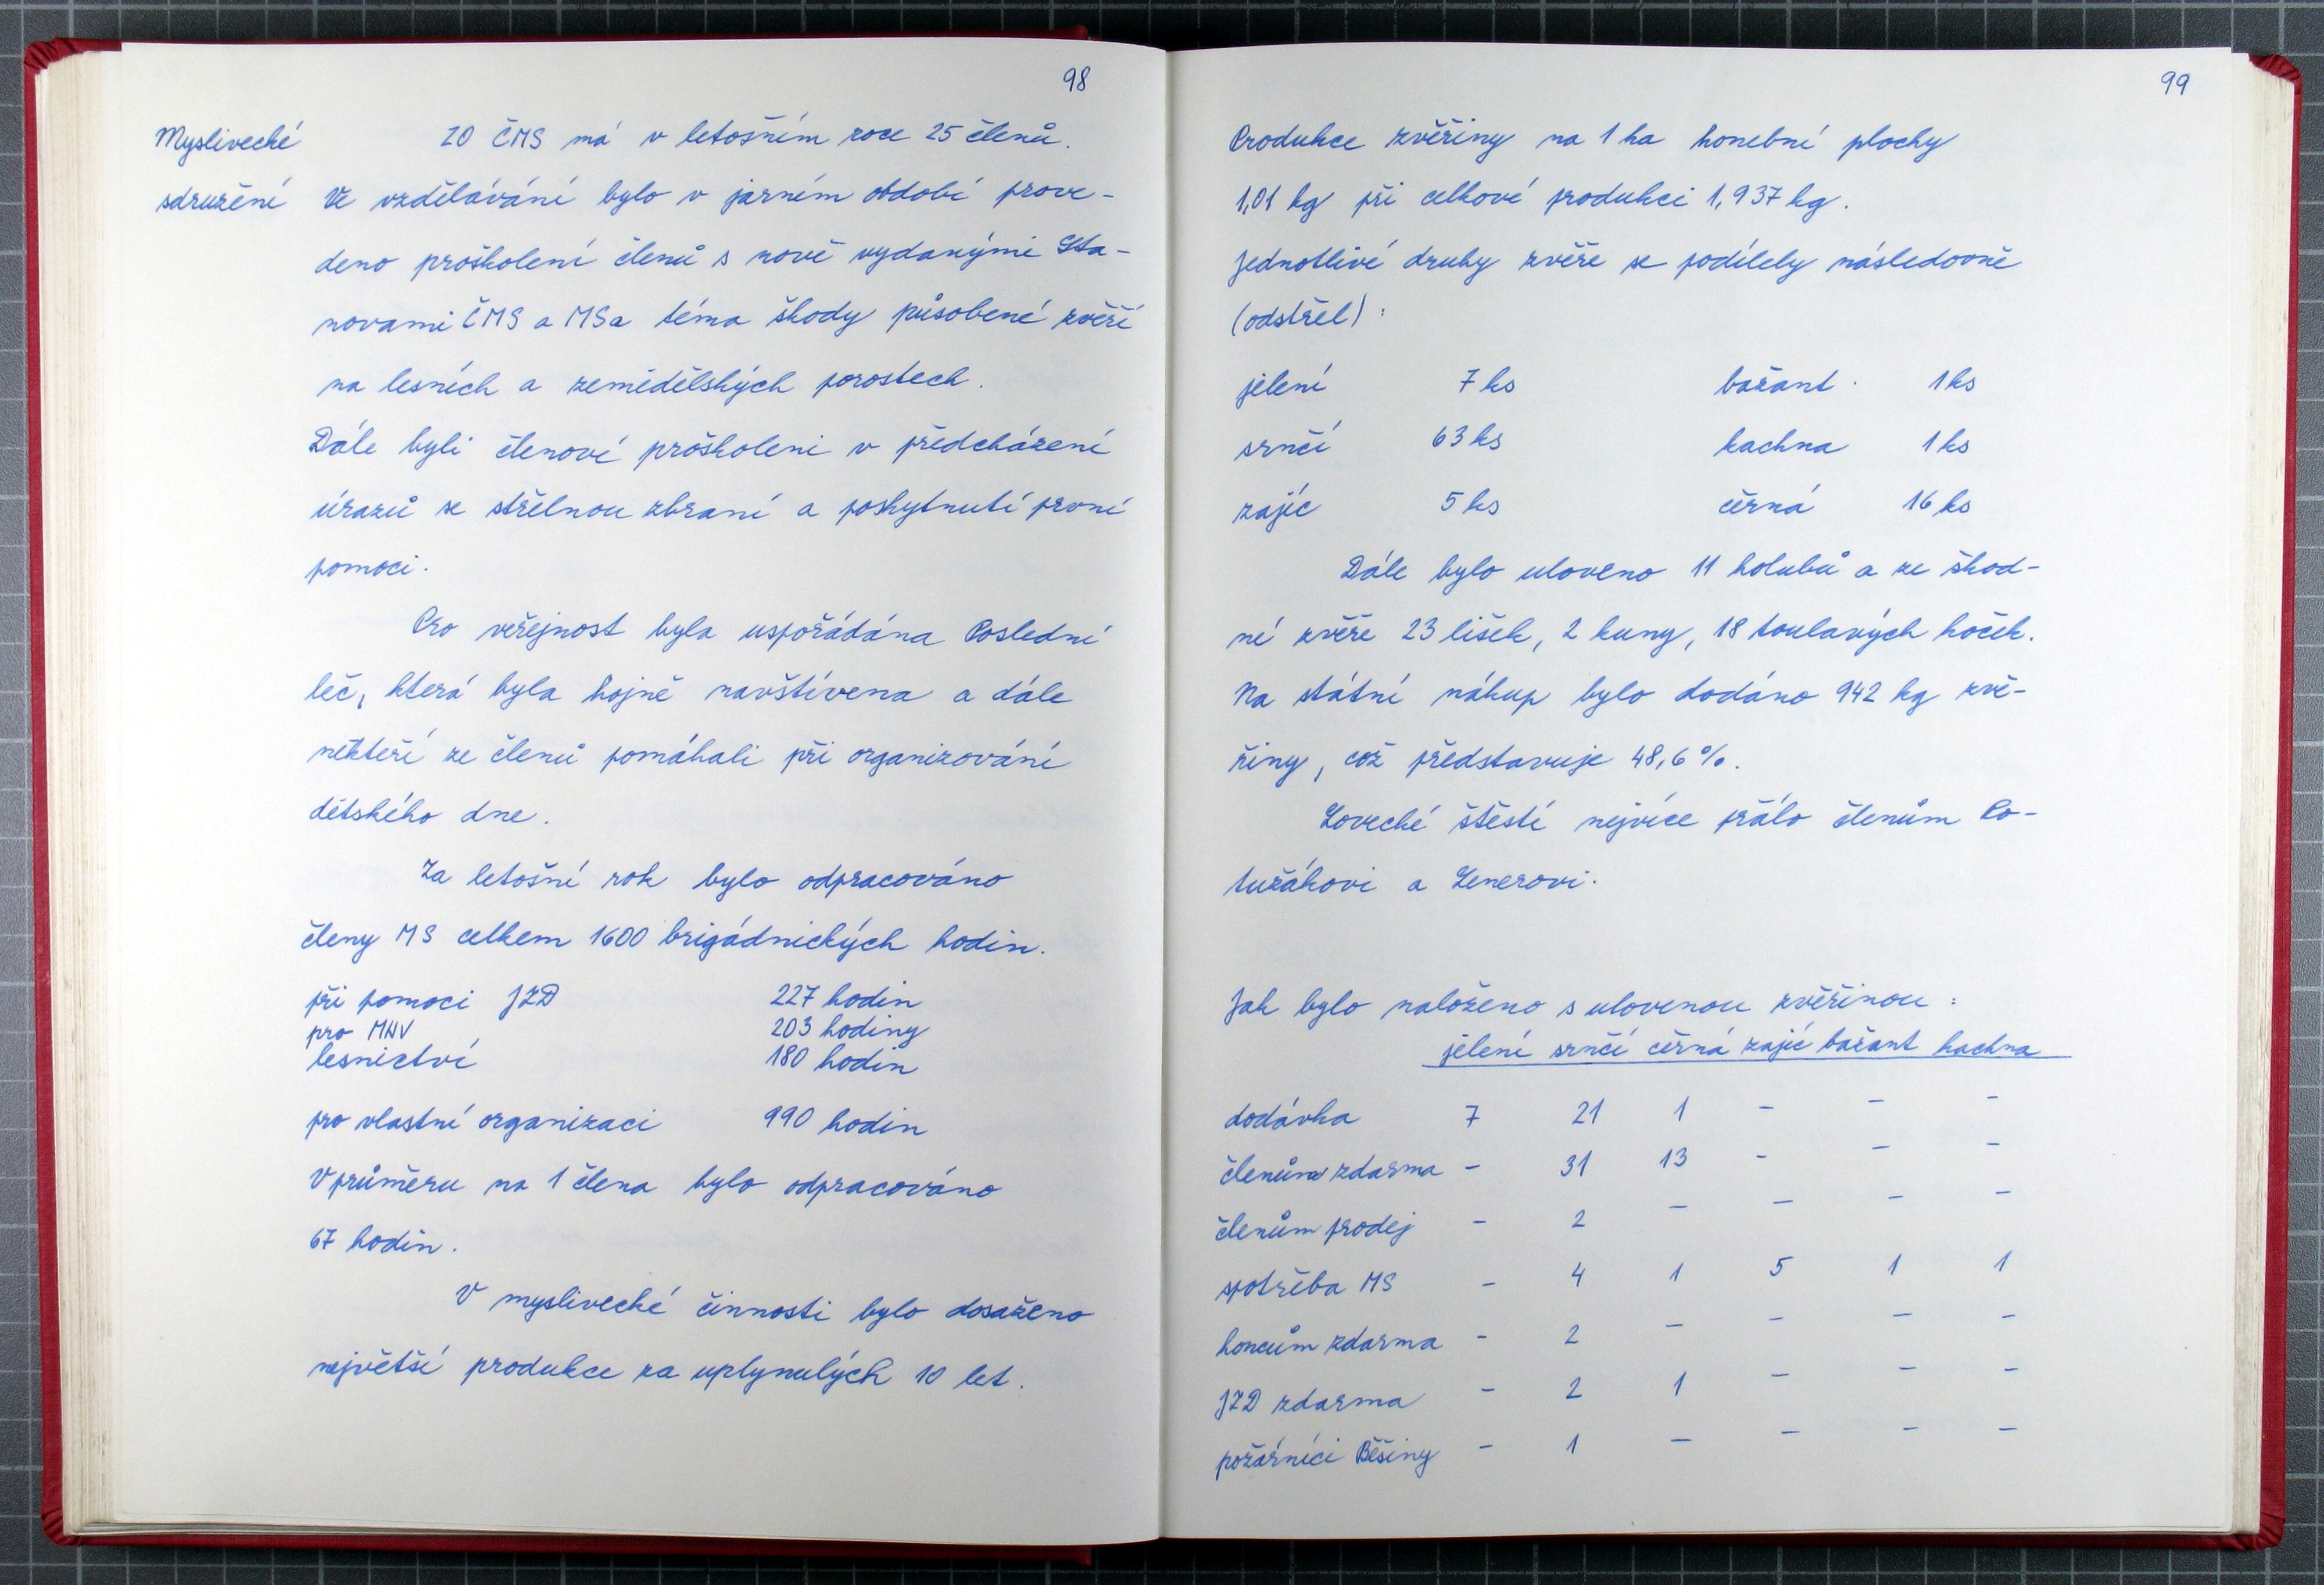 98
Myslivecké ZO ČMS má v letošním roce 25 členů.
sdružení Ve vzdělávání bylo v jarním období prove-
deno proškolení členů s nově vydanými Sta-
novami ČMS a MS a téma škody působené zvěří
na lesních a zemědělských porostech.
Dále byli členové proškoleni v předcházení
úrazů se střelnou zbraní a poskytnutí první
pomoci.
Pro veřejnost byla uspořádána Poslední
leč, která byla hojně navštívena a dále
někteří ze členů pomáhali při organizování
dětského dne.
Za letošní rok bylo odpracováno
členy MS celkem 1600 brigádnických hodin.
při pomoci JZD 227 hodin
pro MNV 203 hodiny
lesnictví 180 hodin
pro vlastní organizaci 990 hodin
V průměru na 1 člena bylo odpracováno
67 hodin.
V myslivecké činnosti bylo dosaženo
největší produkce za uplynulých 10 let.
99
Produkce zvěřiny na 1 ha honební plochy
1,01 kg při celkové produkci 1,937 kg.
Jednotlivé druhy zvěře se podílely následovně
(odstřel) :
jelení 7 ks bažant 1 ks
srnčí 63 ks kachna 1 ks
zajíc 5 ks černá 16 ks
Dále bylo uloveno 11 holubů a ze škod-
né zvěře 23 lišek, 2 kuny, 18 toulavých koček.
Na státní nákup bylo dodáno 942 kg zvě-
řiny, což představuje 48,6 %.
Lovecké štěstí nejvíce přálo členům Po-
tužákovi a Lenerovi.
Jak bylo naloženo s ulovenou zvěřinou :
jelení srnčí černá zajíc bažant kachna
dodávka 7 21 1 - - -
členům zdarma - 31 13 - - -
členům prodej - 2 - - - -
spotřeba MS - 4 1 5 1 1
honcům zdarma - 2 - - - -
JZD zdarma - 2 1 - - -
požárníci Běšiny - 1 - - - -